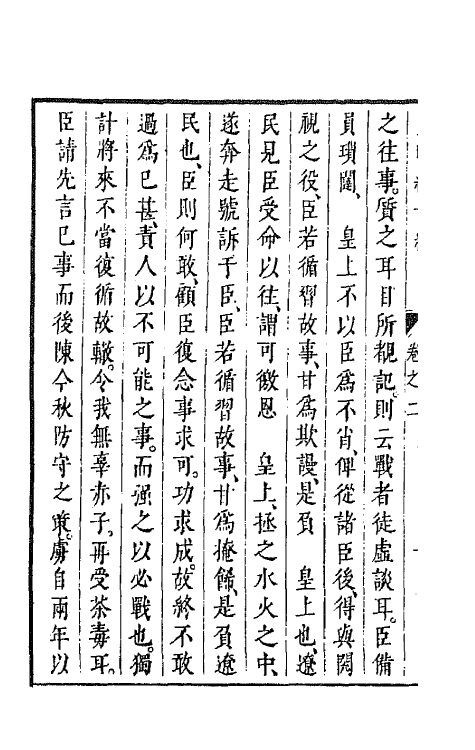 卷之二
之往事。質之耳目所覩記。則云戰者徒虛談耳。臣備
員瑣闥、　皇上不以臣爲不肖、俾從諸臣後、得與閱
視之役、臣若循習故事、甘爲欺謾、是負　皇上也、遼
民見臣受命以往、謂可徼恩　皇上、拯之水火之中、
遂奔走號訴于臣、臣若循習故事、甘爲掩餙、是負遼
民也、臣則何敢、顧臣復念事求可。功求成。故終不敢
過爲已甚、責人以不可能之事。而强之以必戰也。獨
計將來不當復循故轍。令我無辜赤子、再受荼毒耳。
臣請先言已事而後陳今秋防守之策。虜自兩年以